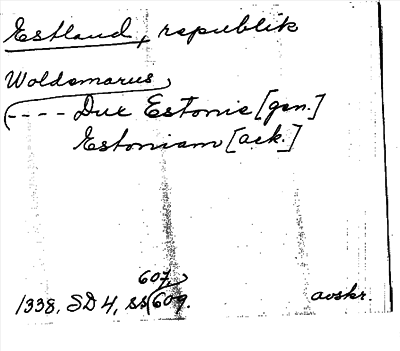 Estland, republik
Woldemarus
---- Dux Estonie [gen.]
Estoniam [ack.]
607,
1338. SD 4, ss 609. avskr.